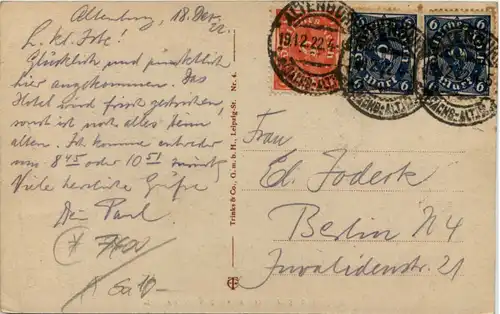 Altenburg, 18. Dez. 22
L. kl. 
Glücklich und pünktlich
hier angekommen. Das
Hotel wird frisch gestrichen,
sonst ist noch alles beim
alten. Ich komme entweder
um 8 45 oder 10 51 zurück
Viele herzliche Grüße
Dein Paul
Trinks & Co., G. m. b. H., Leipzig-St. Nr. 4.
ALTENBURG
19.12.22
(SACHS.-ALT.)
6 6
Mark Mark
6 6
Frau
Ed. Joderk
Berlin N 4
Invalidenstr. 21